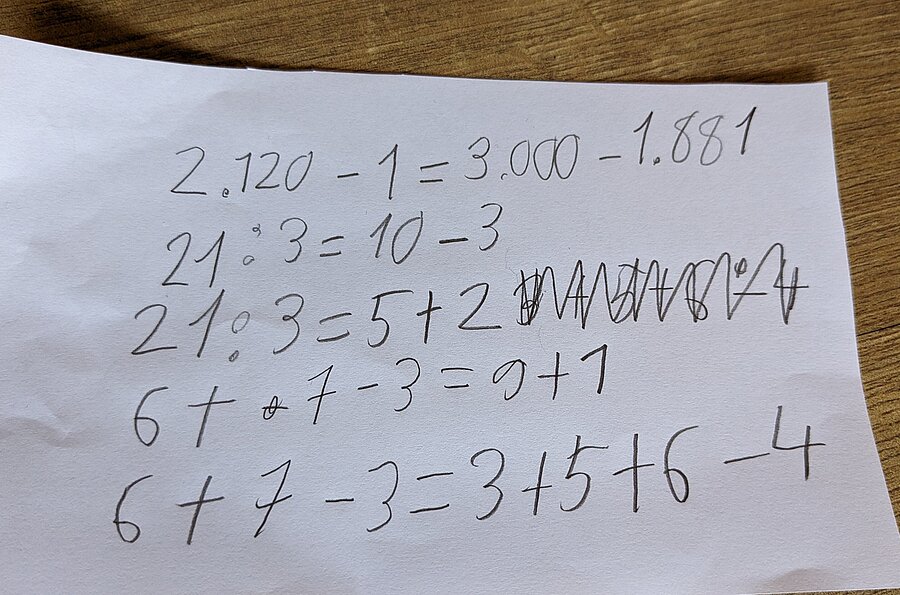 2.120 - 1 = 3.000 - 1.881
21 : 3 = 10 - 3
21 : 3 = 5 + 2
6 + 7 - 3 = 9 + 1
6 + 7 - 3 = 3 + 5 + 6 - 4